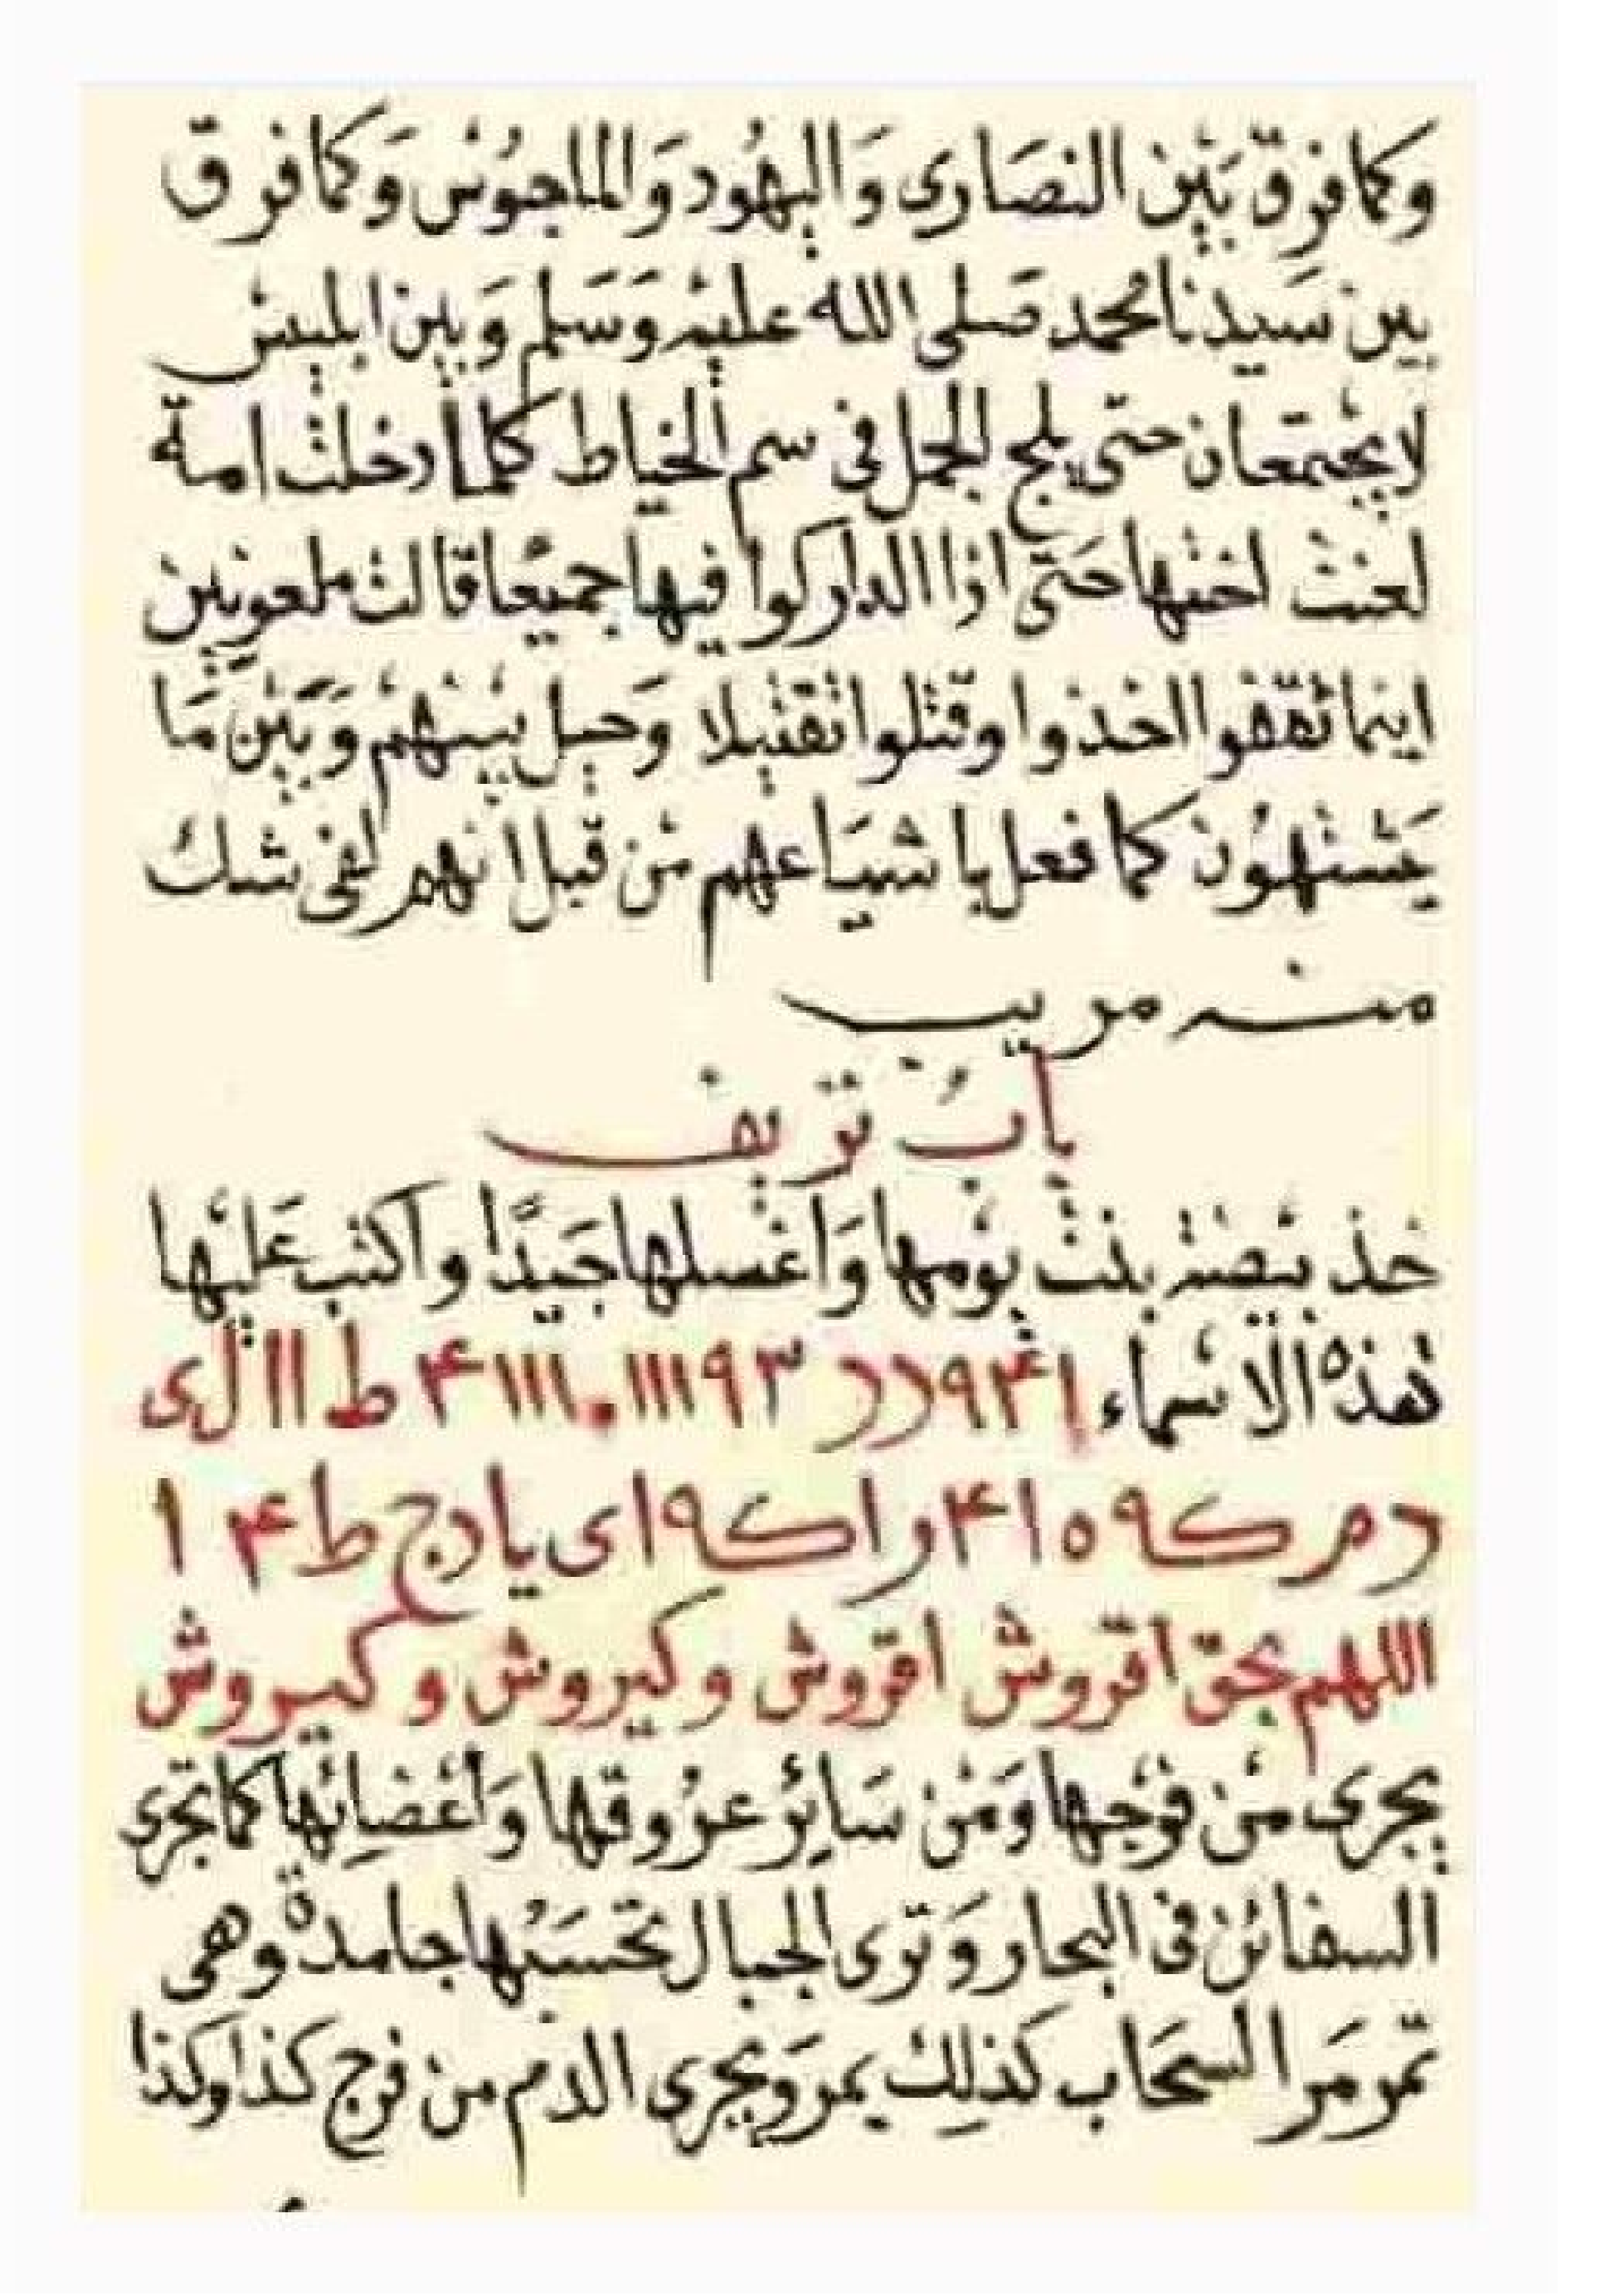 وكما فرق بين النصارى واليهود والماجوس وكما فرق
بين سيدنا محمد صلى الله عليه وسلم وبين ابليس
لا يجتمعان حتى يلج الجمل في سم الخياط كلما دخلت امة
لعنت اختها حتى اذا اداركوا فيها جميعا قالت ملعونين
اينما ثقفوا اخذوا وقتلوا تقتيلا وحيل بينهم وبين ما
يشتهون كما فعل باشياعهم من قبل انهم لفى شك
منه مريب
باب تزيف
خذ بيضة بنت يومها واغسلها جيدا واكتب عليها
هذه الاسماء ٩٤١ ٩٣ ااا ٩ ااا ٤ ط ااا ل ى
د م ر كه ٩ ٥ ا ٤ ر ا كه ٩ ا ى يا دح ط ٤ ا
اللهم بحق اقروش اقروش وكيروش وكيروش
يجرى من فرجها ومن سائر عروقها وأعضائها كما تجرى
السفائن فى البحار وترى الجبال تحسبها جامدة وهى
تمر مر السحاب كذلك يمر ويجرى الدم من فرج كذا وكذا